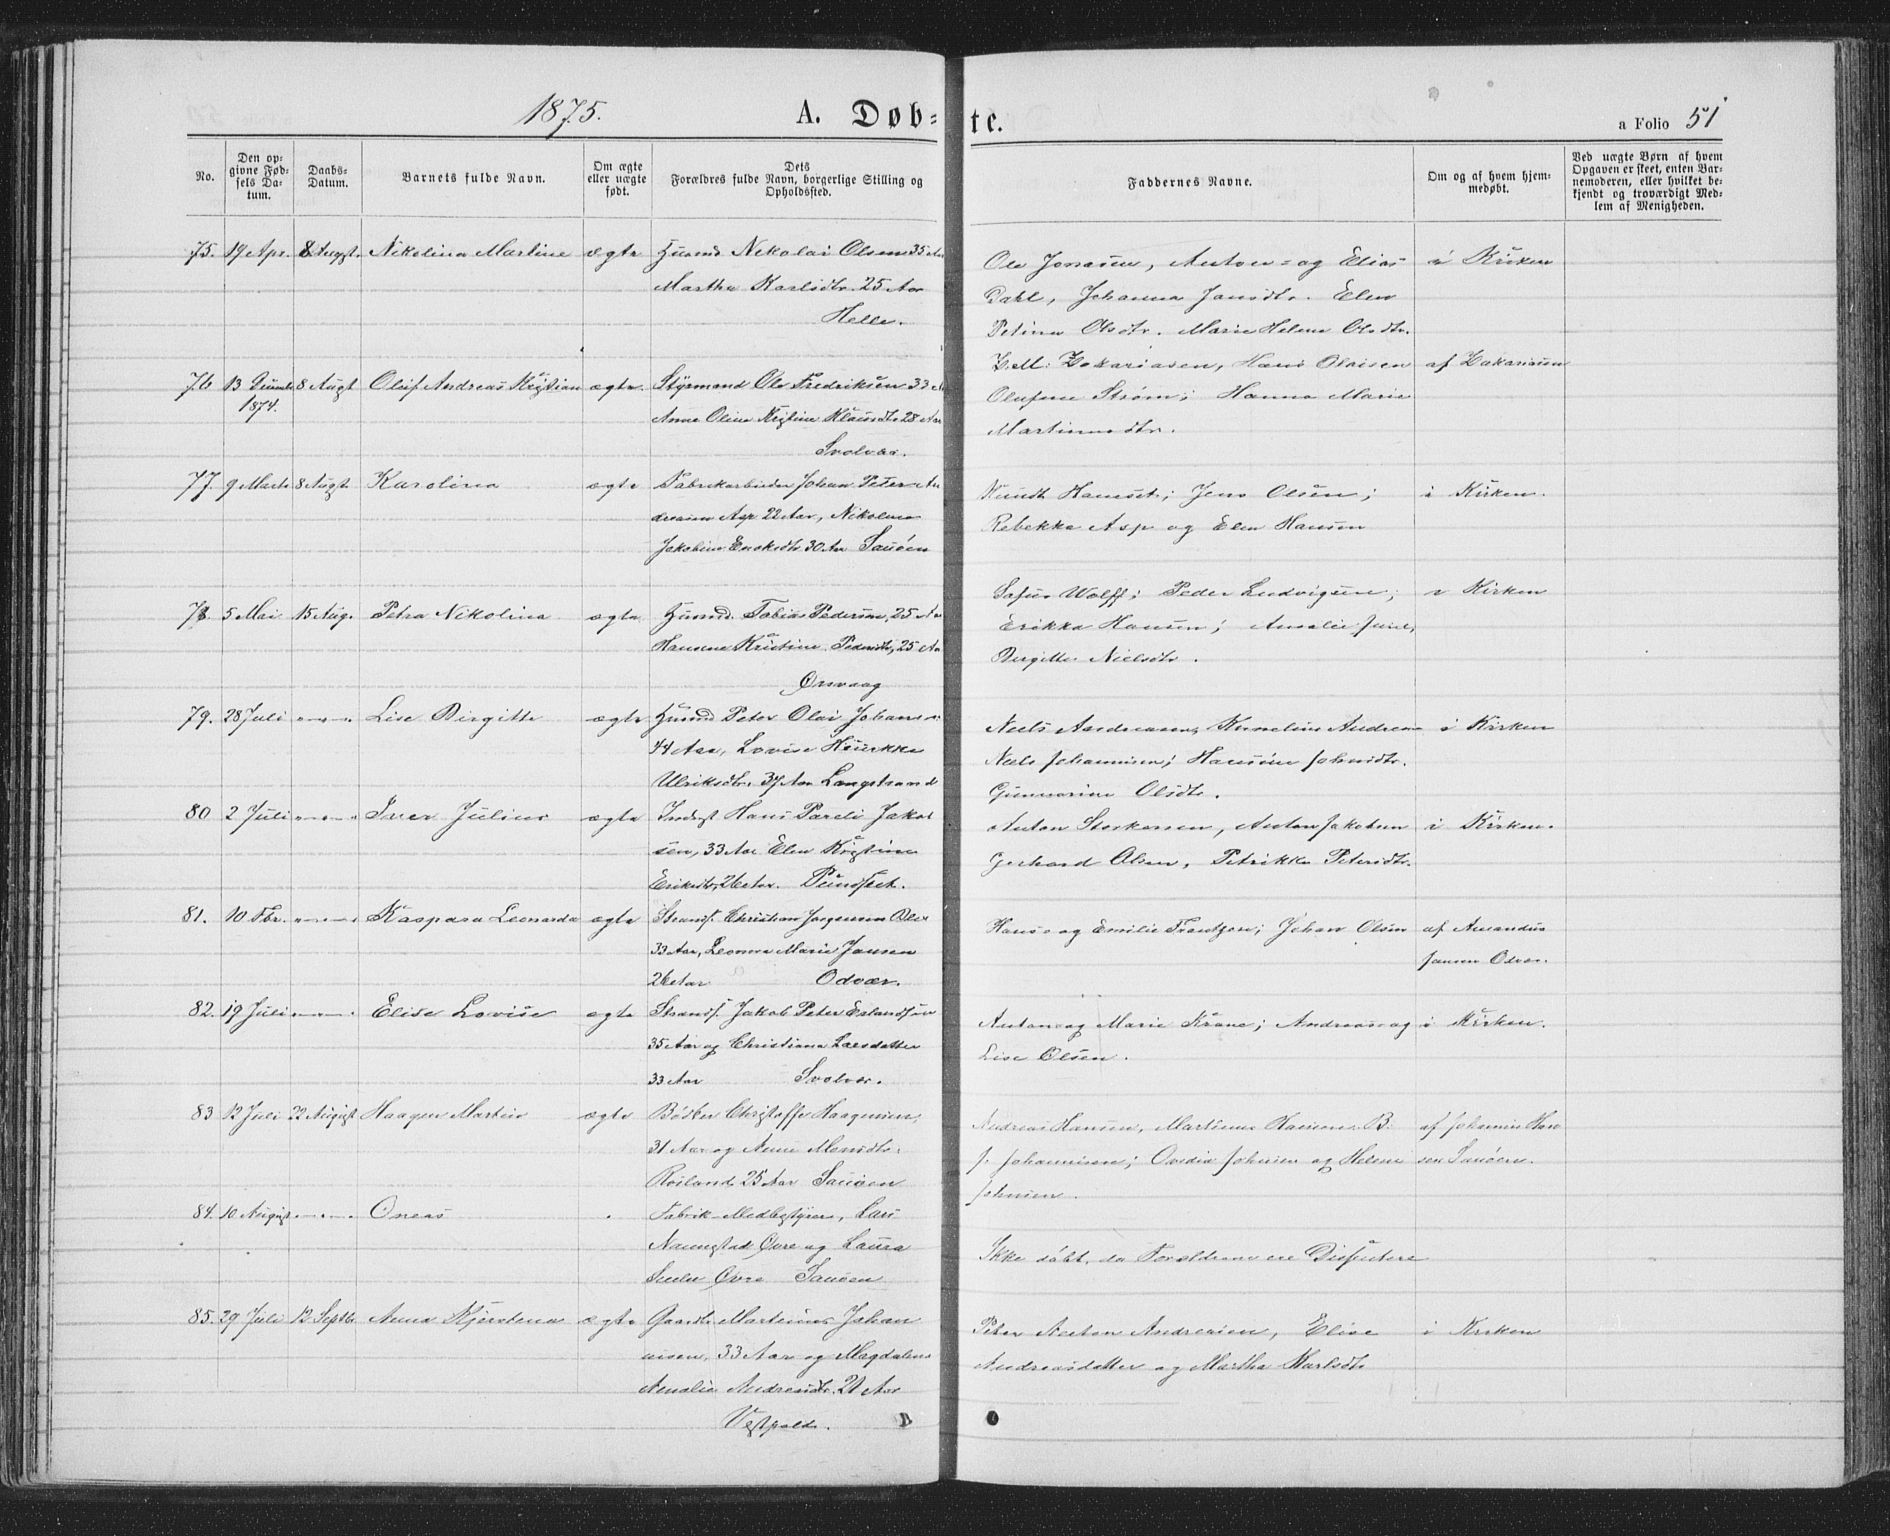 1875. A. Døb= te. a Folio 51
No.
Den op=
givne Fød=
sels Da=
tum.
Daabs=
Datum.
Barnets fulde Navn.
Om ægte
eller uægte
født.
Dets
Forældres fulde Navn, borgerlige Stilling og
Opholdssted.
Faddernes Navne.
Om og af hvem hjem=
medøbt.
Ved uægte Børn af hvem
Opgaven er skeet, enten Bar=
nemoderen, eller hvilket be=
kjendt og troværdigt Med=
lem af Menigheden.
75. 19 Apr. 8 Augst. Nikolina Martine ægte Huusmd Nikolai Olsen 35 Aar
Martha Karlsdtr. 25 Aar
Helle.
Ole Jonasen, Anton= og Elias
Dahl, Johanna Jansdtr. Elen
Petina Olsdtr. Marie Helene Olsdtr.
i Kirken
76. 13 1874. 8 Augst Oluf Andreas Kristian ægte Styrmand Ole Fredriksen 33 Aar
Anne Oline Kristine Klausdtr 28 Aar
Svolvær.
Zakariasen, Hans Olaisen
Olufine Strøm; Hanna Marie
Martinusdtr.
af Zakariasen
77. 9 Marts 8 Augst Karolina ægte Fabrikarbeider Johan Peter An
dreasen Asp 22 Aar, Nikoline
Jakobine Enoksdtr 30 Aar Sauøen
Jens Olsen;
Rebekka Asp og Elen Hansen
i Kirken.
78. 5 Mai 15 Aug. Petra Nikolina ægte Huusmd. Tobias Pedersen, 25 Aar
Hansine Kristine Pedersdtr, 25 Aar
Ørsvaag
Wolff; Peder Ludvigsen;
Erikka Hansen; Amalie
Birgitte Nielsdtr.
i Kirken
79. 28 Juli "—"—" Lise Birgitte ægte Huusmd Peter Olai Johansen
44 Aar, Lovise Henrikke
Ulriksdtr. 37 Aar Langstrand
Niels Andreasen, Kornelius Andreas
Niels Johannesen; Hansine Johnsdtr.
Olsdtr.
i Kirken
80 2 Juli "—"—" Iver Julius ægte Hans Pareli Jakob
sen, 33 Aar Elen Kristine
Eriksdtr, 26 Aar. Pundslet.
Anton Storkersen, Anton Jakobsen
Gerhard Olsen, Petrikke Petersdtr.
i Kirken.
81. 10 Fbr. "—"—" Kaspara Leonarda ægte Strands. Christian Jørgensen
33 Aar, Leonna Marie Jansen
26 Aar Odvær.
Hans= og Emilie Frantzen; Johan Olsen
af Amandus
Jansen Odvær.
82. 19 Juli "—"—" Elise Lovise ægte Strands. Jakob Peter Erlandsen
35 Aar og Christiana Larsdatter
33 Aar Svolvær.
Anton= og Marie Krane; Andreas= og
Lise Olsen.
i Kirken.
83 12 Juli 22 August Haagen Martin ægte Bødker Christoffer Haagensen,
31 Aar og Anne Monsdtr.
Røiland 25 Aar Sauøen
Andreas Hansen, Martinus Hansen B:
J. Johannesen; Ovedia Johnsen og Helene
Johnsen.
af Johannes Han
sen Sauøen.
84. 10 August "—"—" Oneas Fabrik-Medbestyrer, Lars
Naunstad Øvre og Laura
Øvre Sauøen
Ikke døbt, da Forældrene ere Dissentere
85. 29 Juli 12 Septbr. Anna Kjerstena ægte Gaardbr Martinus Johan
nesen, 33 Aar og Magdalena
Amalie Andreasdtr. 21 Aar
Vestpold.
Peter Anton Andreasen, Elise
Andreasdatter og Martha Karlsdtr
i Kirken